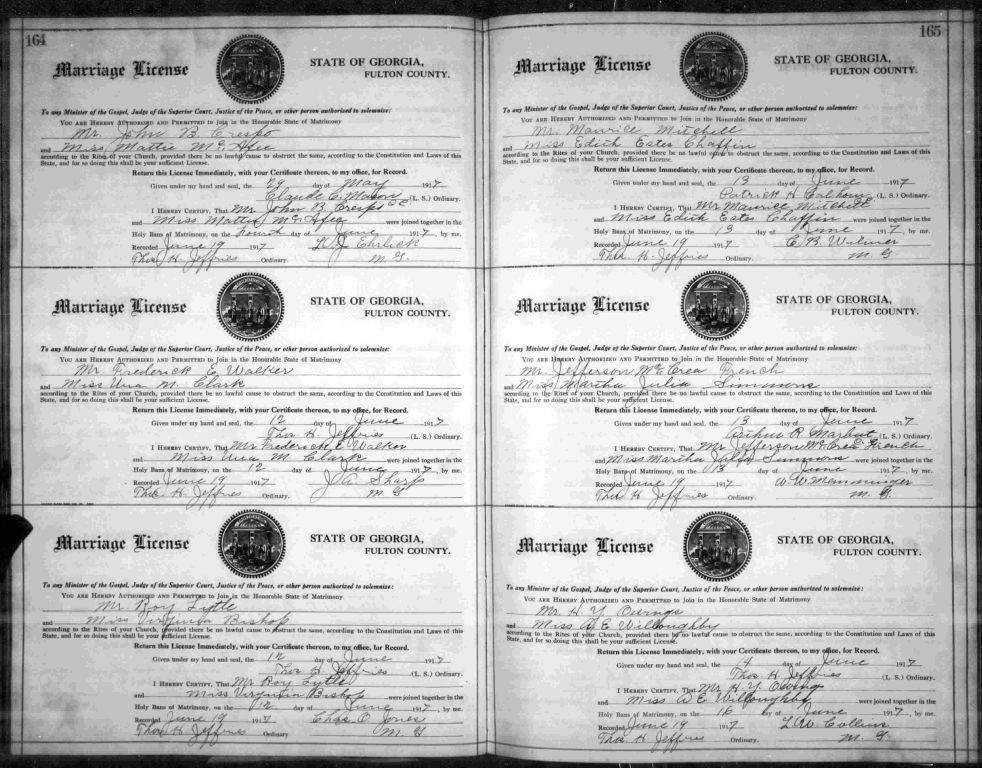 164
Marriage License
STATE OF GEORGIA,
FULTON COUNTY.
To any Minister of the Gospel, Judge of the Superior Court, Justice of the Peace, or other person authorized to solemnize:
YOU ARE HEREBY AUTHORIZED AND PERMITTED to Join in the Honorable State of Matrimony
Mr. John B. Crespo
and Miss Mattie McAfee
according to the Rites of your Church, provided there be no lawful cause to obstruct the same, according to the Constitution and Laws of this
State, and for so doing this shall be your sufficient License.
Return this License Immediately, with your Certificate thereon, to my office, for Record.
Given under my hand and seal, the 29 day of May 1917
Claude C. Mason (L. S.) Ordinary.
I HEREBY CERTIFY, That Mr John B. Crespo
and Miss Mattie McAfee were joined together in the
Holy Bans of Matrimony, on the Fourth day of June 1917, by me.
Recorded June 19 1917 Ehrlick
Thos H. Jeffries Ordinary. M. G.
Marriage License
STATE OF GEORGIA,
FULTON COUNTY.
To any Minister of the Gospel, Judge of the Superior Court, Justice of the Peace, or other person authorized to solemnize:
YOU ARE HEREBY AUTHORIZED AND PERMITTED to Join in the Honorable State of Matrimony
Mr. Frederick E Walker
and Miss Una M. Clark
according to the Rites of your Church, provided there be no lawful cause to obstruct the same, according to the Constitution and Laws of this
State, and for so doing this shall be your sufficient License.
Return this License Immediately, with your Certificate thereon, to my office, for Record.
Given under my hand and seal, the 12 day of June 1917
Thos H. Jeffries (L. S.) Ordinary.
I HEREBY CERTIFY, That Mr Frederick E Walker
and Miss Una M Clark were joined together in the
Holy Bans of Matrimony, on the 12 day of June 1917, by me.
Recorded June 19 1917 J A. Sharp
Thos H Jeffries Ordinary. M G
Marriage License
STATE OF GEORGIA,
FULTON COUNTY.
To any Minister of the Gospel, Judge of the Superior Court, Justice of the Peace, or other person authorized to solemnize:
YOU ARE HEREBY AUTHORIZED AND PERMITTED to Join in the Honorable State of Matrimony
Mr. Roy Lytle
and Miss Virginia Bishop
according to the Rites of your Church, provided there be no lawful cause to obstruct the same, according to the Constitution and Laws of this
State, and for so doing this shall be your sufficient License.
Return this License Immediately, with your Certificate thereon, to my office, for Record.
Given under my hand and seal, the 12 day of June 1917
Thos H Jeffries (L. S.) Ordinary.
I HEREBY CERTIFY, That Mr Roy Lytle
and Miss Virginia Bishop were joined together in the
Holy Bans of Matrimony, on the 12 day of June 1917, by me.
Recorded June 19 1917 Chas. O Jones
Thos H Jeffries Ordinary M. G.
165
Marriage License
STATE OF GEORGIA,
FULTON COUNTY.
To any Minister of the Gospel, Judge of the Superior Court, Justice of the Peace, or other person authorized to solemnize:
YOU ARE HEREBY AUTHORIZED AND PERMITTED to Join in the Honorable State of Matrimony
Mr. Maurice Mitchell
and Miss Edith Estes Chaffin
according to the Rites of your Church, provided there be no lawful cause to obstruct the same, according to the Constitution and Laws of this
State, and for so doing this shall be your sufficient License.
Return this License Immediately, with your Certificate thereon, to my office, for Record.
Given under my hand and seal, the 13 day of June 1917
Patrick H. Calhoun (L. S.) Ordinary.
I HEREBY CERTIFY, That Mr Maurice Mitchell
and Miss Edith Estes Chaffin were joined together in the
Holy Bans of Matrimony, on the 13 day of June 1917, by me.
Recorded June 19 1917 C. B. Wilmer
Thos H. Jeffries Ordinary. M G
Marriage License
STATE OF GEORGIA,
FULTON COUNTY.
To any Minister of the Gospel, Judge of the Superior Court, Justice of the Peace, or other person authorized to solemnize:
YOU ARE HEREBY AUTHORIZED AND PERMITTED to Join in the Honorable State of Matrimony
Mr. Jefferson McCrea French
and Miss Martha Julia Simmons
according to the Rites of your Church, provided there be no lawful cause to obstruct the same, according to the Constitution and Laws of this
State, and for so doing this shall be your sufficient License.
Return this License Immediately, with your Certificate thereon, to my office, for Record.
Given under my hand and seal, the 13 day of June 1917
Arthur R. Marbut (L. S.) Ordinary.
I HEREBY CERTIFY, That Mr Jefferson McCrea French
and Miss Martha Julia Simmons were joined together in the
Holy Bans of Matrimony, on the 13 day of June 1917, by me.
Recorded June 19 1917 W. W. Memminger
Thos H Jeffries Ordinary. M. G.
Marriage License
STATE OF GEORGIA,
FULTON COUNTY.
To any Minister of the Gospel, Judge of the Superior Court, Justice of the Peace, or other person authorized to solemnize:
YOU ARE HEREBY AUTHORIZED AND PERMITTED to Join in the Honorable State of Matrimony
Mr. H. Y. Owings
and Miss W E Willoughby
according to the Rites of your Church, provided there be no lawful cause to obstruct the same, according to the Constitution and Laws of this
State, and for so doing this shall be your sufficient License.
Return this License Immediately, with your Certificate thereon, to my office, for Record.
Given under my hand and seal, the 4 day of June 1917
Thos H Jeffries (L. S.) Ordinary.
I HEREBY CERTIFY, That Mr H. Y. Owings
and Miss W E Willoughby were joined together in the
Holy Bans of Matrimony, on the 16 day of June 1917, by me.
Recorded June 19 1917 L W. Collins
Thos H. Jeffries Ordinary. M. G.